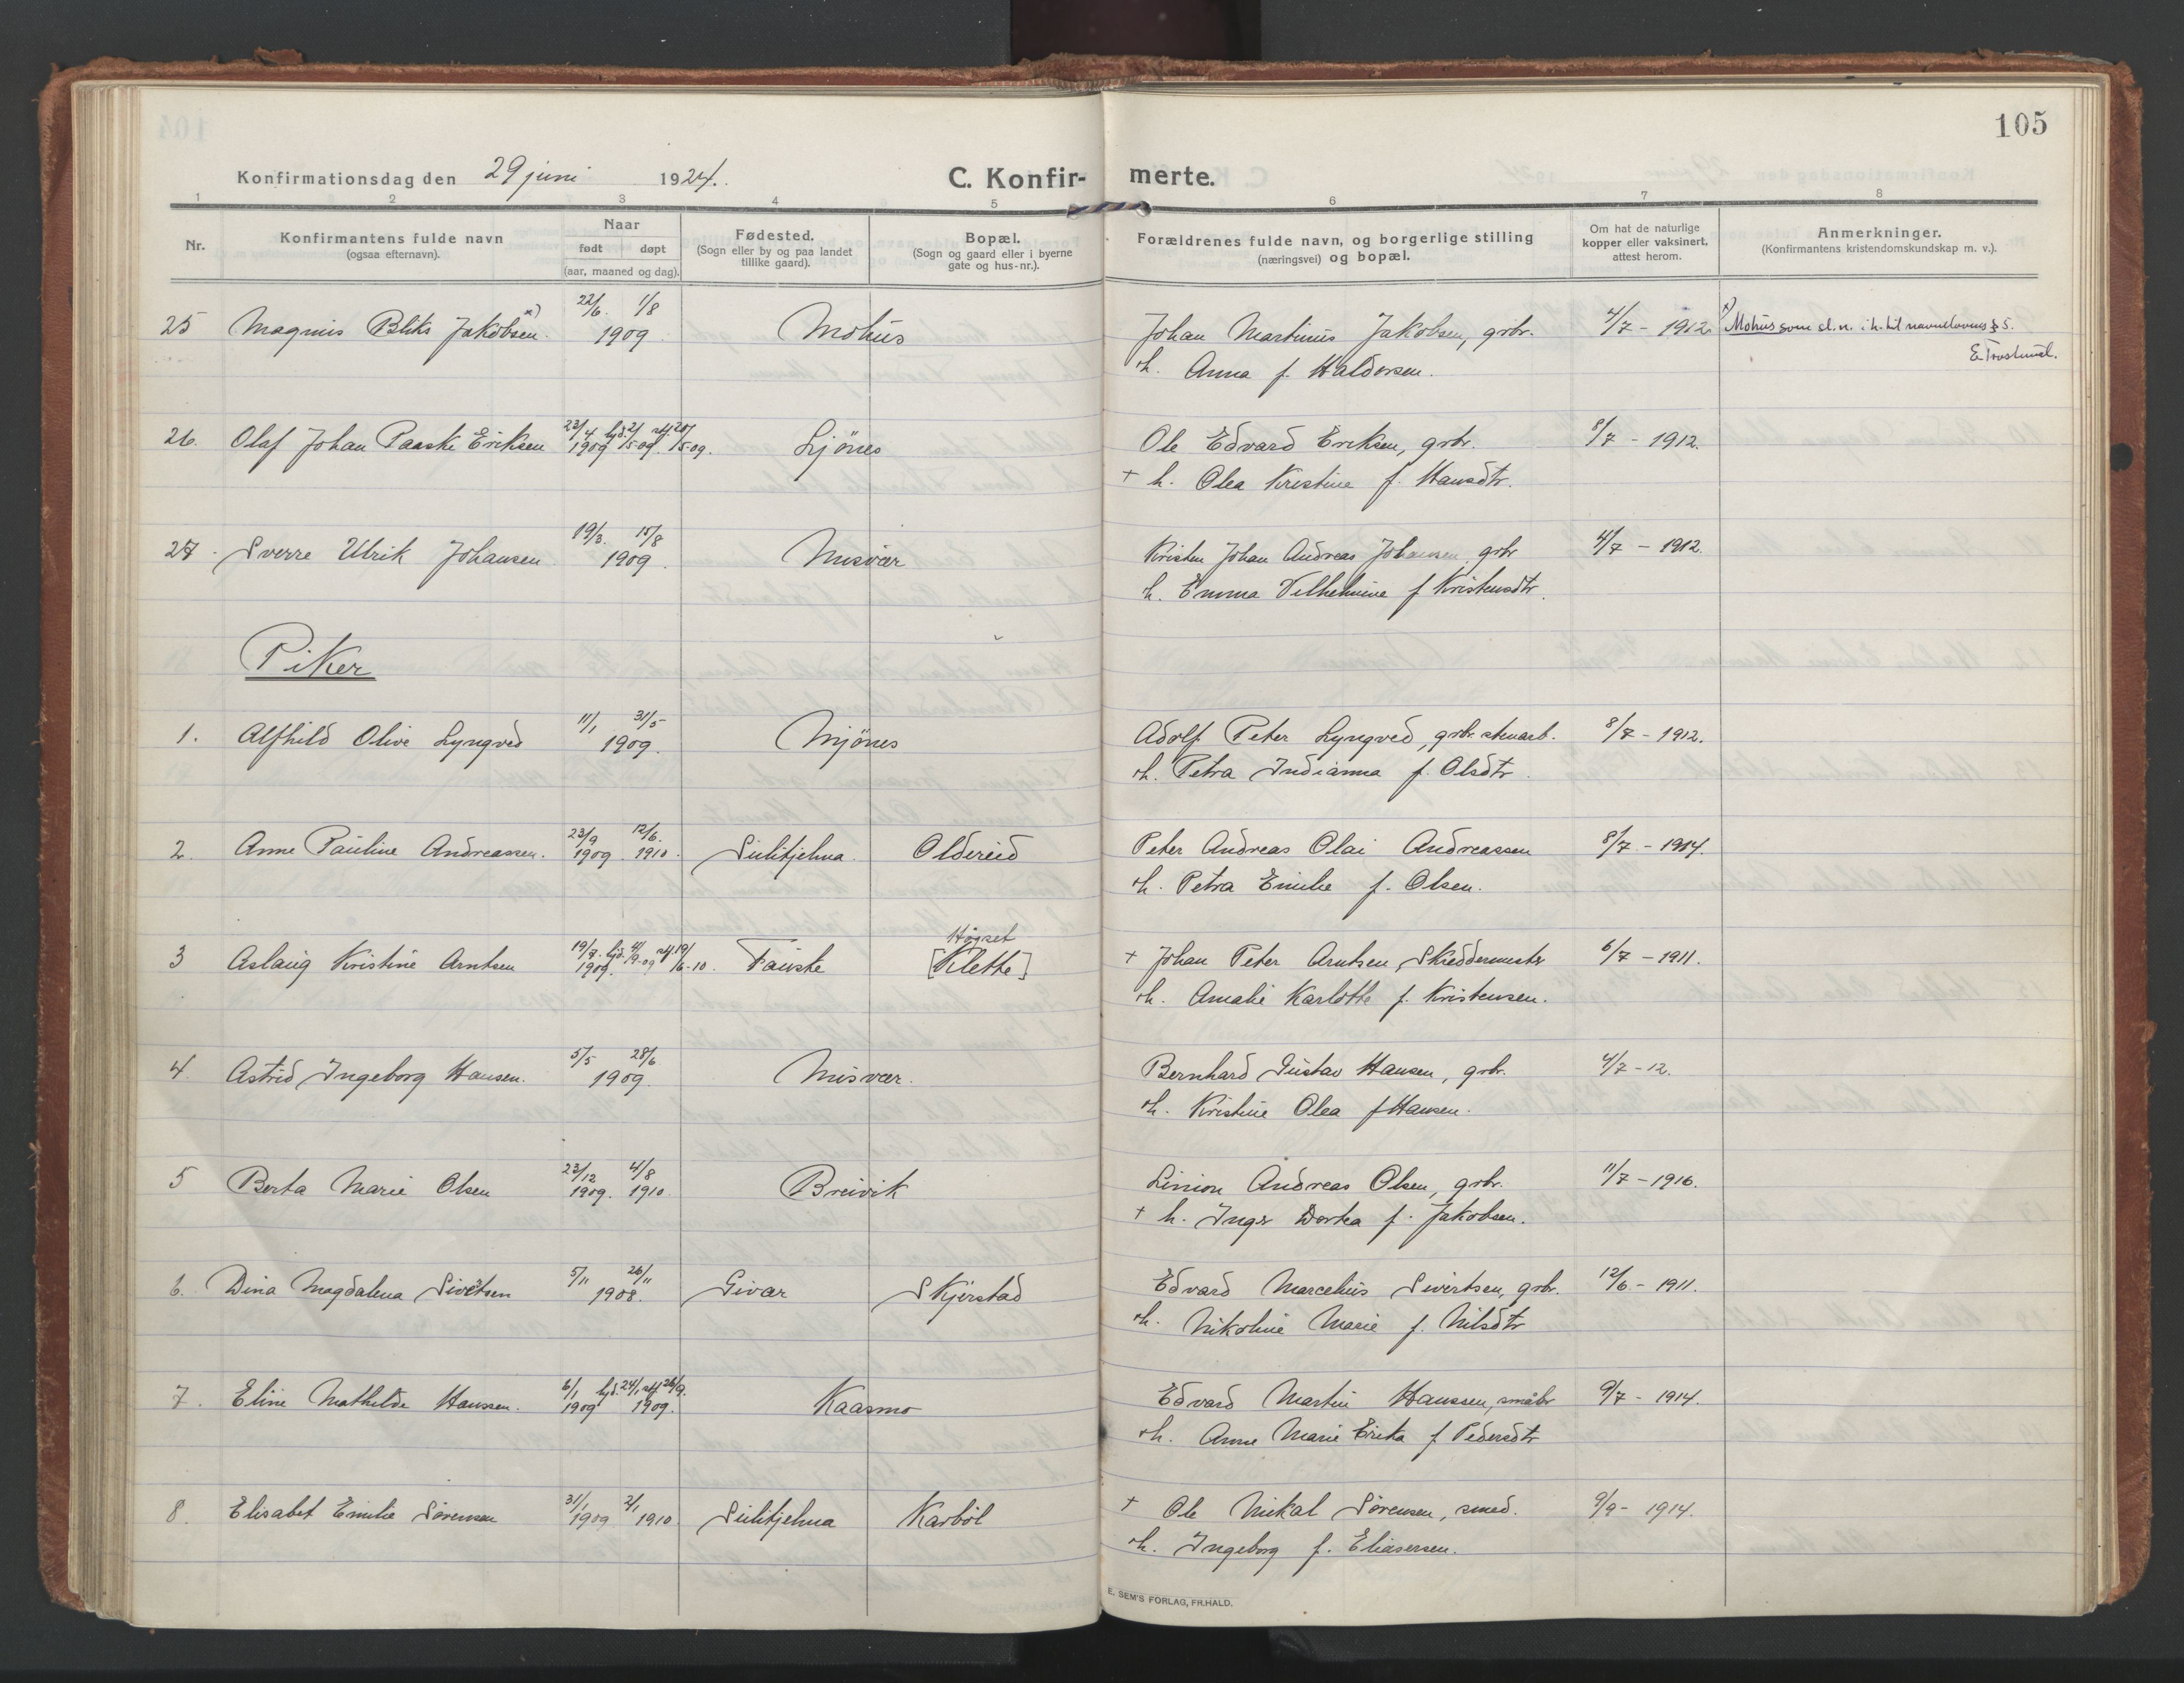 105
Konfirmationsdag den 29 juni 1924. C. Konfir- merte.
1 2 3 4 5 6 7 8
Nr. Konfirmantens fulde navn (ogsaa efternavn). Naar født døpt (aar, maaned og dag). Fødested. (Sogn eller by og paa landet tillike gaard). Bopæl. (Sogn og gaard eller i byerne gate og hus-nr.). Forældrenes fulde navn, og borgerlige stilling (næringsvei) og bopæl. Om hat de naturlige kopper eller vaksinert, attest herom. Anmerkninger. (Konfirmantens kristendomskundskap m. v.).
25 Magnus Bliks Jakobsen x) 22/6. 1/8 1909 Mohus Johan Martinus Jakobsen, grbr. 4/7 - 1912. x) Mohus som sl.n. i h. til navnelovens § 5.
h. Anna f. Haldorsen.
26. Olaf Johan Paaske Eriksen 23/4 1909 hjd. 2/5-09. stf. 20/5-09. Ljönes Ole Edvard Eriksen, grbr. 8/7 - 1912.
+ h. Olea Kristine f. Hansdtr.
27. Sverre Ulrik Johansen 19/3. 15/8 1909. Misvær Kristen Johan Andreas Johansen grbr 4/7 - 1912.
h. Emma Vilhelmine f Kristensdtr.
Piker
1. Alfhild Olive Lyngved 11/1 31/5 1909. Mjönes Adolf Peter Lyngved, grbr. stenarb. 8/7 - 1912.
h. Petra Indianna f. Olsdtr.
2. Anne Pauline Andreassen. 23/9 1909. 12/6. 1910. Sulitjelma. Oldereid Peter Andreas Olai Andreassen 8/7 - 1914.
h. Petra Emilie f. Olsen.
3 Aslaug Kristine Arntsen 19/7. 1909. hjd. 4/9-09 stf 19/6-10. Fauske Högset [Klette] + Johan Peter Arntsen, Skreddermester 6/7 - 1911.
h. Amalie Karlotte f. Kristensen.
4. Astrid Ingeborg Hansen. 5/5 28/6 1909. Misvær. Bernhard Gustav Hansen, grbr. 4/7 - 12.
h. Kristine Olea f Hansen.
5 Berta Marie Olsen 23/12 1909. 4/8 1910. Breivik Linion Andreas Olsen, grbr. 11/7 - 1916.
+ h. Inger Dorka f. Jakobsen.
6. Dina Magdalena Sivertsen 5/11 26/11 1908. Givær Skjerstad Edvard Marcelius Sivertsen, grbr. 12/6 - 1911.
h. Nikoline Marie f. Nilsdtr
7. Eline Mathilde Hanssen. 6/1 1909 hjd. 24/1 stf 26/9. 1909. Kaasmo Edvard Martin Hanssen, småbr 9/7 - 1914.
h. Anne Marie Erika f Pedersdtr
8. Elisabet Emilie Sörensen 31/1 1909 2/1 1910. Sulitjelma Karböl + Ole Mikal Sörensen, smed. 9/9 - 1914.
h. Ingeborg f. Eliasersen.
E. SEM'S FORLAG, FR.HALD.